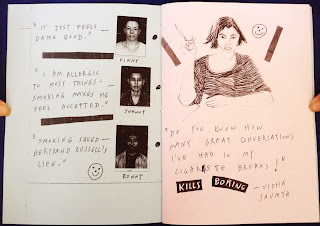 "IT JUST FEELS
DAMN GOOD."
VINNY
"I AM ALLERGIC
TO MOST THINGS -
SMOKING MAKES ME
FEEL ACCEPTED."
JOHNNY
"SMOKING SAVED
BERTRAND RUSSELL'S
LIFE."
RONNY
"DO YOU KNOW HOW
MANY GREAT CONVERSATIONS
I'VE HAD IN MY
CIGARETTE BREAKS!"
KILLS BORING
- VIDHA
SAUMYA